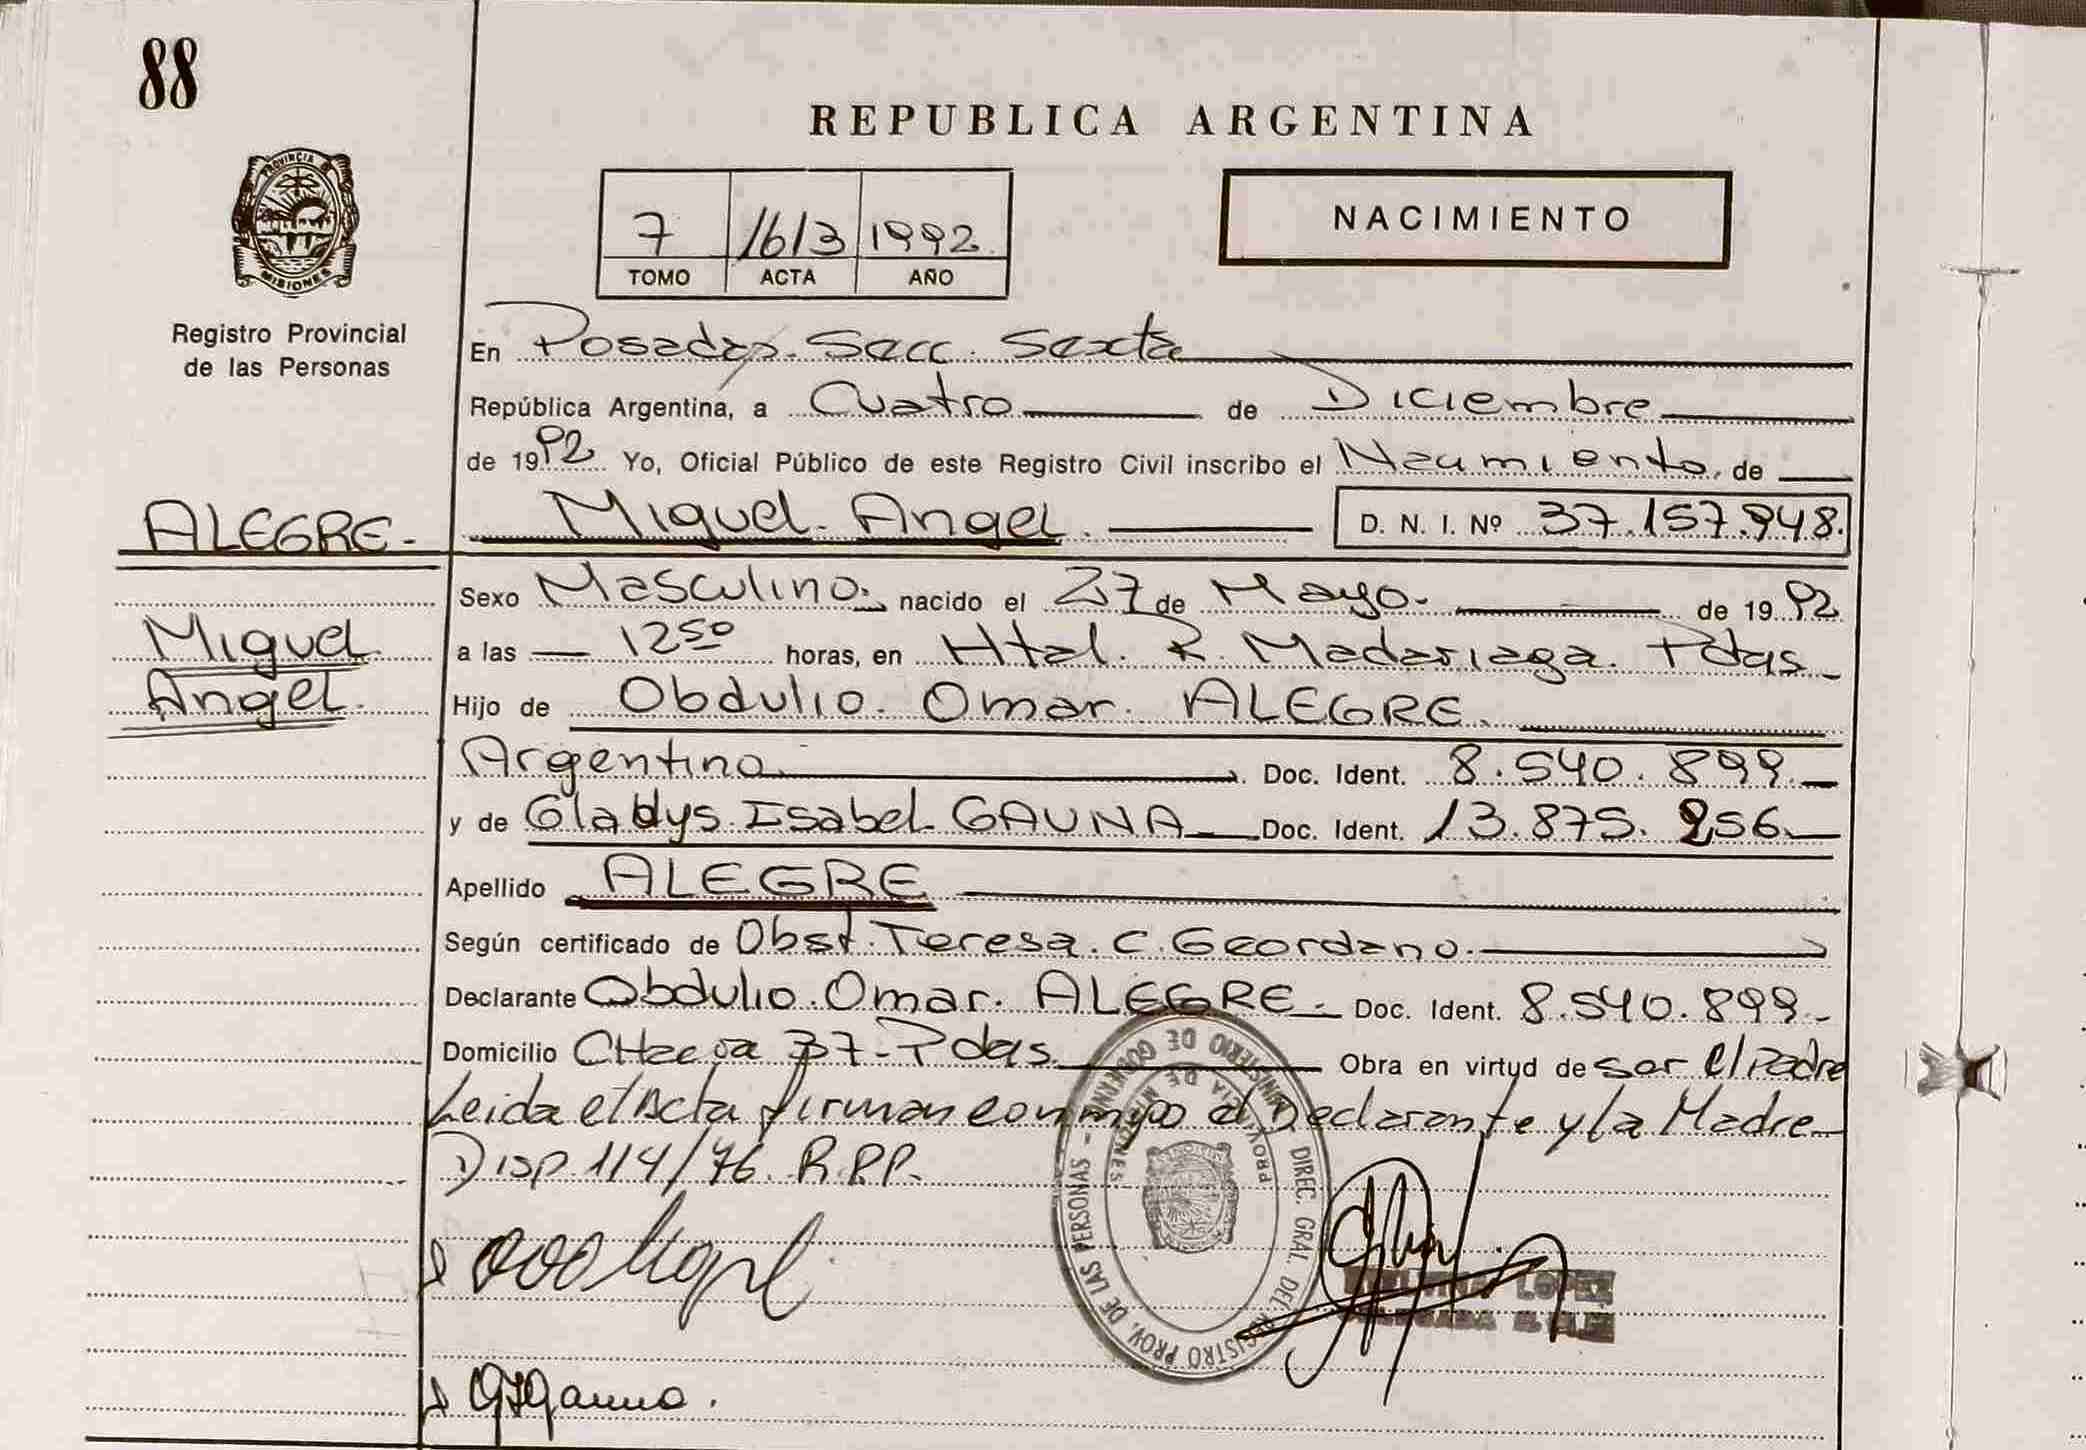 88
REPUBLICA ARGENTINA
PROVINCIA DE
MISIONES
Registro Provincial
de las Personas
7 1613 1992
TOMO ACTA AÑO
NACIMIENTO
En Posadas. Secc. Sexta
República Argentina, a Cuatro de Diciembre
de 1992 Yo, Oficial Público de este Registro Civil inscribo el Nacimiento de
ALEGRE.-
Miguel Angel. D. N. I. Nº 37.157.948.
Sexo Masculino. nacido el 27 de Mayo. de 1992
Miguel
a las 12 50 horas, en Htal. R. Madariaga. Pdas
Angel.
Hijo de Obdulio. Omar. ALEGRE.
Argentino Doc. Ident. 8.540.899.
y de Gladys. Isabel GAUNA Doc. Ident. 13.875.256
Apellido ALEGRE
Según certificado de Obst. Teresa. C. Geordano.
Declarante Obdulio. Omar. ALEGRE. Doc. Ident. 8.540.899.
Domicilio CHacra 37-Pdas. Obra en virtud de ser el Padre
Leida el Acta firman conmigo el Declarante y la Madre
Disp. 114/76. R.P.P.
MINISTERIO DE GOBIERNO - DIREC. GRAL. DEL REGISTRO PROV. DE LAS PERSONAS -
PROVINCIA DE MISIONES
LOPEZ
GIGauna.